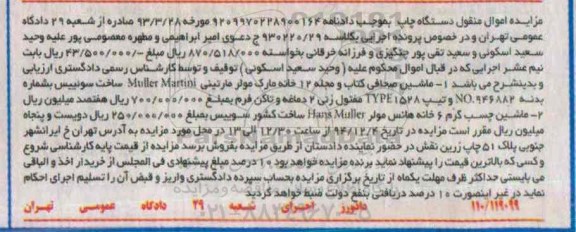 مزایده اموال منقول دستگاه چاپ بموجب دادنامه ۹۲۰۹۹۷۰۲۲۸۹۰۰۱۶۴ مورخه ۹۳/۳/۲۸ صادره از شعبه ۲۹ دادگاه
عمومی تهران و در خصوص پرونده اجرایی بکلاسه ۹۳۰۲۲۰/۲۹ ج دعوی امیر ابراهیمی و مطهره معصومی پور علیه وحید
سعید اسکونی و سعید تقی پور چنگیزی و فرزانه خرقانی بخواسته ۸۷۰/۵۱۸/۰۰۰ ریال مبلغ ۴۳/۵۰۰/۰۰۰/- ریال بابت
نیم عشر اجرایی که در قبال اموال محکوم علیه ( وحید سعید اسکونی ) توقیف و توسط کارشناس رسمی دادگستری ارزیابی
و بدینشرح می باشد ۱- ماشین صحافی کتاب و مجله ۱۲ خانه مارک مولر مارتینی Muller Martini ساخت سوییس بشماره
بدنه NO.۹۴۶۸۸۲ و تیپ TYPE۱۵۲۸ مفتول زنی ۲ دماغه و تاکن فرم بمبلغ ۷۰۰/۰۰۰/۰۰۰ ریال هفتصد میلیون ریال
۲- ماشین چسب گرم ۶ خانه هانس مولر Hans Muller ساخت کشور سوییس بمبلغ ۲۵۰/۰۰۰/۰۰۰ ریال دویست و پنجاه
میلیون ریال مقرر است مزایده در تاریخ ۹۴/۱۲/۴ از ساعت ۱۲/۳۰ الی ۱۳ در محل مورد مزایده به آدرس تهران خ ایرانشهر
جنوبی پلاک ۵۱ چاپ زرین نقش در حضور نماینده دادستان از طریق مزایده بفروش برسد مزایده از قیمت پایه کارشناسی شروع
و کسی که بالاترین قیمت را پیشنهاد نماید برنده مزایده خواهد بود ۱۰ درصد مبلغ پیشنهادی فی المجلس از خریدار اخذ و الباقی
می بایستی حداکثر ظرف مهلت یکماه از تاریخ برگزاری مزایده بحساب سپرده دادگستری واریز و قبض آن را تسلیم اجرای احکام
نماید در غیر اینصورت ۱۰ درصد دریافتی بنفع دولت ضبط خواهد گردید
۱۱۰/۱۱۹۰۹۹ دادورز اجرای شعبه ۲۹ دادگاه عمومی تهران